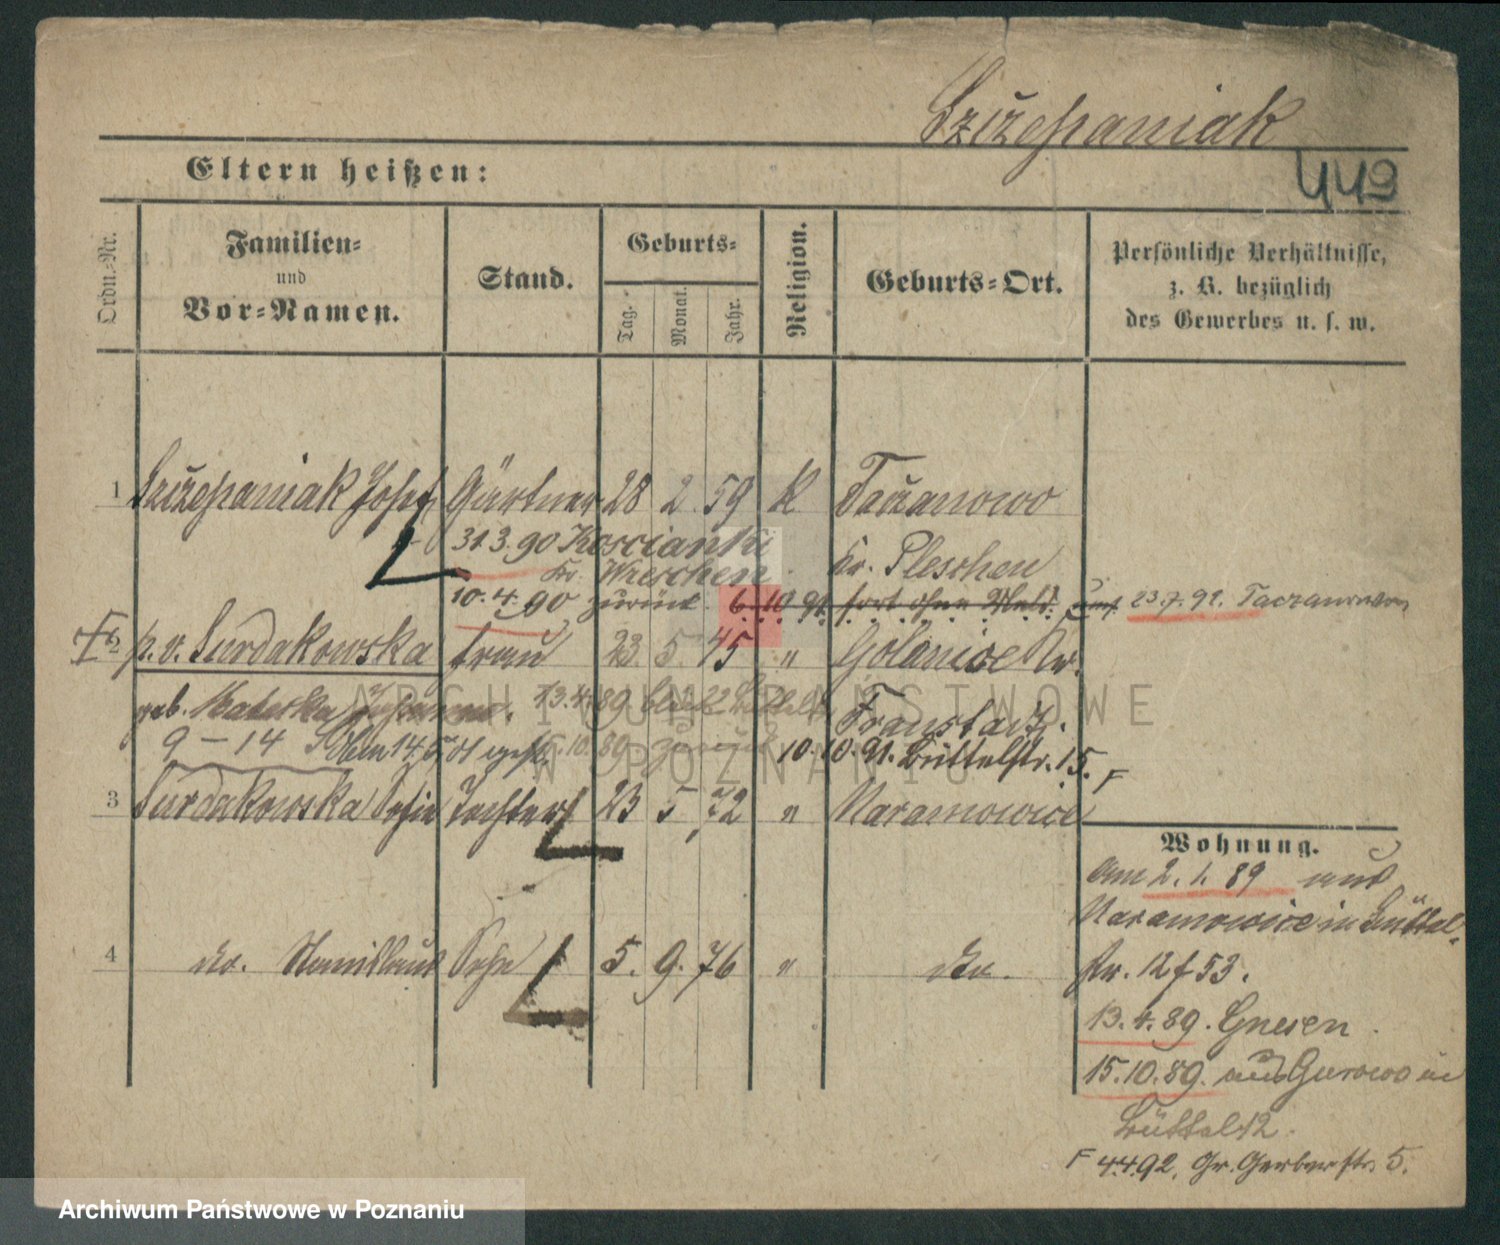 Szczepaniak
Eltern heißen:
449
Ordn.-Nr.
Familien-
und
Vor-Namen.
Stand.
Geburts-
Tag.
Monat.
Jahr.
Religion.
Geburts-Ort.
Persönliche Verhältnisse,
z. B. bezüglich
des Gewerbes u. s. w.
1 Szczepaniak Josef Gärtner 28 2 59 K Taczanowo
31.3.90 Koscianki
Kr. Wreschen Kr. Pleschen
10.4.90 zurück. 6.10.91. fort ohne Meld. 23.7.91. Taczanowo
2 p. v. Surdakowska Frau 23. 5. 45 " Golanice Kr.
geb. 13.4.89 Fraustadt.
9-14 10.89 zurück 10.10.91. Büttelstr. 15. F
3 Surdakowska Sofie Tochter 23 5 72 " Naramowice
Wohnung.
Am 2.1.89 aus
Naramowice in Büttel-
4 do. Stanislaus Sohn 5. 9. 76 " do.
str. 12 f 53.
13.4.89. Gnesen
15.10.89. aus Gurowo in
Büttel 12.
F 4.4.92. Gr. Gerberstr. 5.
ARCHIWUM PAŃSTWOWE
W POZNANIU
Archiwum Państwowe w Poznaniu